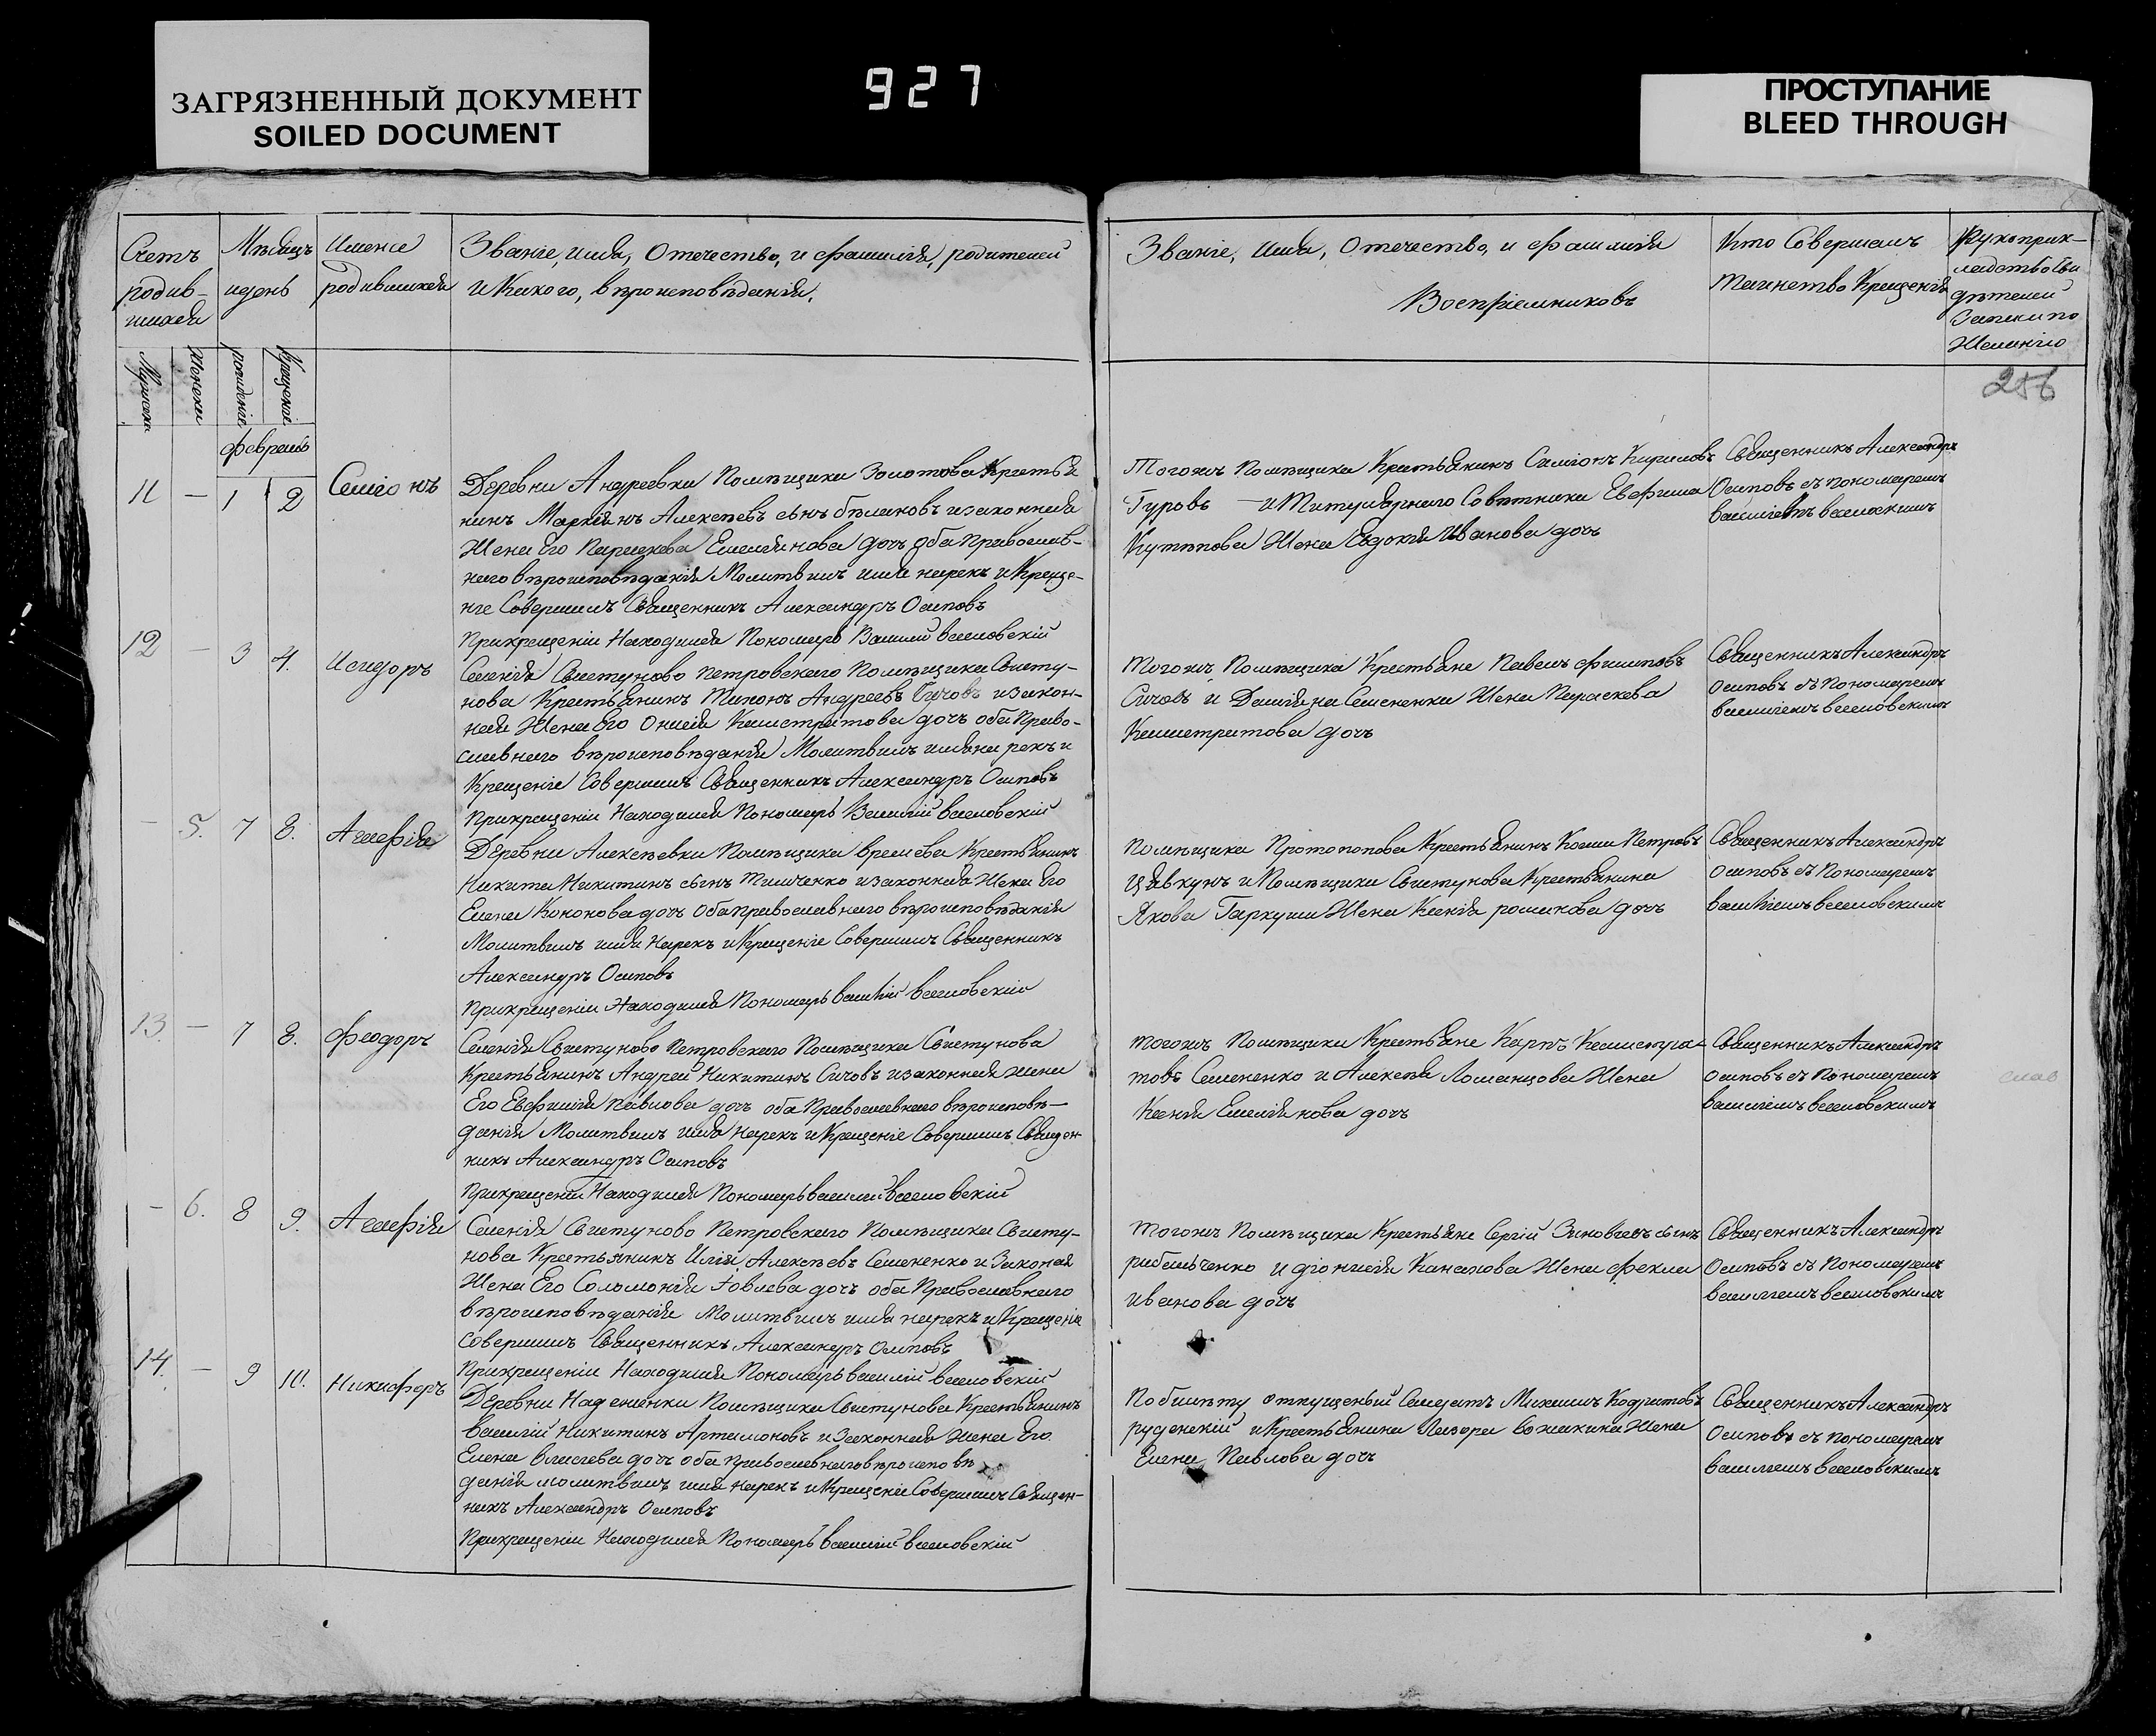 ЗАГРЯЗНЕННЫЙ ДОКУМЕНТ
SOILED DOCUMENT
927
ПРОСТУПАНИЕ
BLEED THROUGH
Счетъ родив-шихся
Мѣсяцъ и день
Имена родившихся
Званіе, имя, Отечество, и фамилія, родителей
и Какого, вѣроисповѣданія,
Званіе, имя, Отечество, и фамилія
Воспріемниковъ
Кто Совершалъ
таинство Крещенія
Рукоприк-
ладство Сви
дѣтелей
Записи по
Желанію
Мужеска
Женска
рожденіе
Крещеніе
256
февраль
11 — 1 2 Симіонъ
Деревни Андреевки Помѣщика Золотова Крестья
нинъ Маркіянъ Алексѣевъ сынъ бѣлаковъ и законная
Жена Его Параскева Емелянова дочь оба православ-
наго вѣроисповѣданія Молитвилъ имя нарекъ и Креще-
ніе Совершилъ Священникъ Александръ Осиповъ
Прикрещеніи Находился Пономарь Василій веселовскій
Тогожъ Помѣщика Крестьянинъ Симіонъ Кириловъ
Гуровъ — и Титулярнаго Совѣтника Евфима
Кутѣпова Жена Евдокія Иванова дочь
Священникъ Александръ
Осиповъ съ пономаремъ
василіемъ веселовскимъ
12 — 3 4. Исидоръ
Селенія Свистуново Петровскаго Помѣщика Свисту-
нова Крестьянинъ Тихонъ Андреевъ Сичовъ и закон-
ная Жена Его Онисія Калистратова дочь оба Право-
славнаго вѣроисповѣданія Молитвилъ имя на рекъ и
Крещеніе Совершилъ Священникъ Александръ Осиповъ
Прикрещеніи Находился Пономарь Василій веселовскій
тогожъ Помѣщика Крестьяне Павелъ филиповъ
Сичовъ и Даміяна Семененка Жена Параскева
Калистратова дочь
Священникъ Александръ
Осиповъ съ Пономаремъ
василіемъ веселовскимъ
— 5. 7 8. Агафія
Деревни Алексѣевки Помѣщика Крестьянинъ
Никита Никитинъ сынъ Тимченко и законная Жена Его
Елена Кононова дочь Оба православнаго вѣроисповѣданія
Молитвилъ имя Нарекъ и Крещеніе Совершилъ Священникъ
Александръ Осиповъ
Прикрещеніи Находился Пономарь василій веселовскій
Помѣщика Протопопова Крестьянинъ Косма Петровъ
Цявкунъ и Помѣщика Свистунова Крестьянина
Якова Гаркуши Жена Ксенія романова дочь
Священникъ Александръ
Осиповъ съ Пономаремъ
василіемъ веселовскимъ
13. — 7 8. Феодоръ
Селенія Свистуново Петровскаго Помѣщика Свистунова
Крестьянинъ Андрей Никитинъ Сичовъ и законная жена
Его Евфимія Павлова дочь оба Православнаго вѣроисповѣ-
данія Молитвилъ имя нарекъ и Крещеніе Совершилъ Священ-
никъ Александръ Осиповъ
Прикрещеніи Находился Пономарь василій веселовскій
тогожъ Помѣщика Крестьяне Карпъ Калистра-
товъ Семененко и Алексѣя Ломанцова Жена
Ксенія Емеліянова дочь
Священникъ Александръ
Осиповъ съ Пономаремъ
василіемъ веселовскимъ
— 6. 8 9. Агафія
Селенія Свистуново Петровскаго Помѣщика Свисту-
нова Крестьянинъ Илія Алексѣевъ Семененко и Законая
Жена Его Соломонія Іовлева дочь оба Православнаго
вѣроисповѣданія Молитвилъ имя нарекъ и Крещеніе
совершилъ Священникъ Александръ Осиповъ
Прикрещеніи Находился Пономарь василій веселовскій
тогожъ Помѣщика Крестьяне Сергій Зиновьевъ сынъ
рибальченко и діонисія Жена фекла
иванова дочь
Священникъ Александръ
Осиповъ съ Пономаремъ
василіемъ веселовскимъ
14. — 9 10. Никифоръ
Деревни Надеменки Помѣщика Свистунова Крестьянинъ
василій Никитинъ Артамоновъ и Законная жена Его
Елена власіева дочь оба православнаго вѣроисповѣ
данія молитвилъ имя нарекъ и Крещеніе Совершилъ Священ-
никъ Александръ Осиповъ
Прикрещеніи Находился Пономарь василій веселовскій
По билѣту отпущеный Салдатъ Михаилъ Кодратовъ
руденскій и Крестьянина Лазора Божакина Жена
Елена Павлова дочь
Священникъ Александръ
Осиповъ съ пономаремъ
василіемъ веселовскимъ